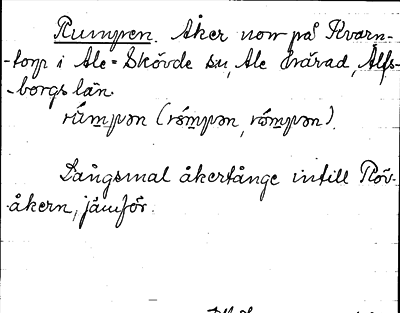 Rumpen. Åker norr på Kvarn-
-torp i Ale-Skövde sn, Ale härad, Älfs-
-borgs län.
rúmpən (rómpən, rómpən).
Långsmal åkertånge intill Röv-
åkern, jämför.